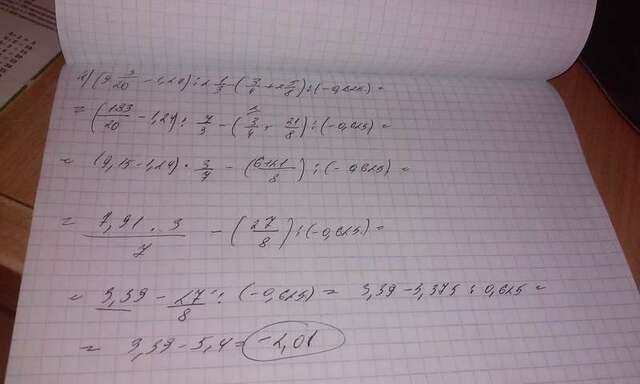 (9 3/20 - 1,24) : 2 1/3 - (3/4 + 2 5/8) : (-0,625) =
= (183/20 - 1,24) : 7/3 - (3/4 + 21/8) : (-0,625) =
= (9,15 - 1,24) · 3/7 - (6+21/8) : (-0,625) =
= 7,91 · 3/7 - (27/8) : (-0,625) =
= 3,39 - 27/8 : (-0,625) = 3,39 - 3,375 : 0,625 =
= 3,39 - 5,4 = -2,01